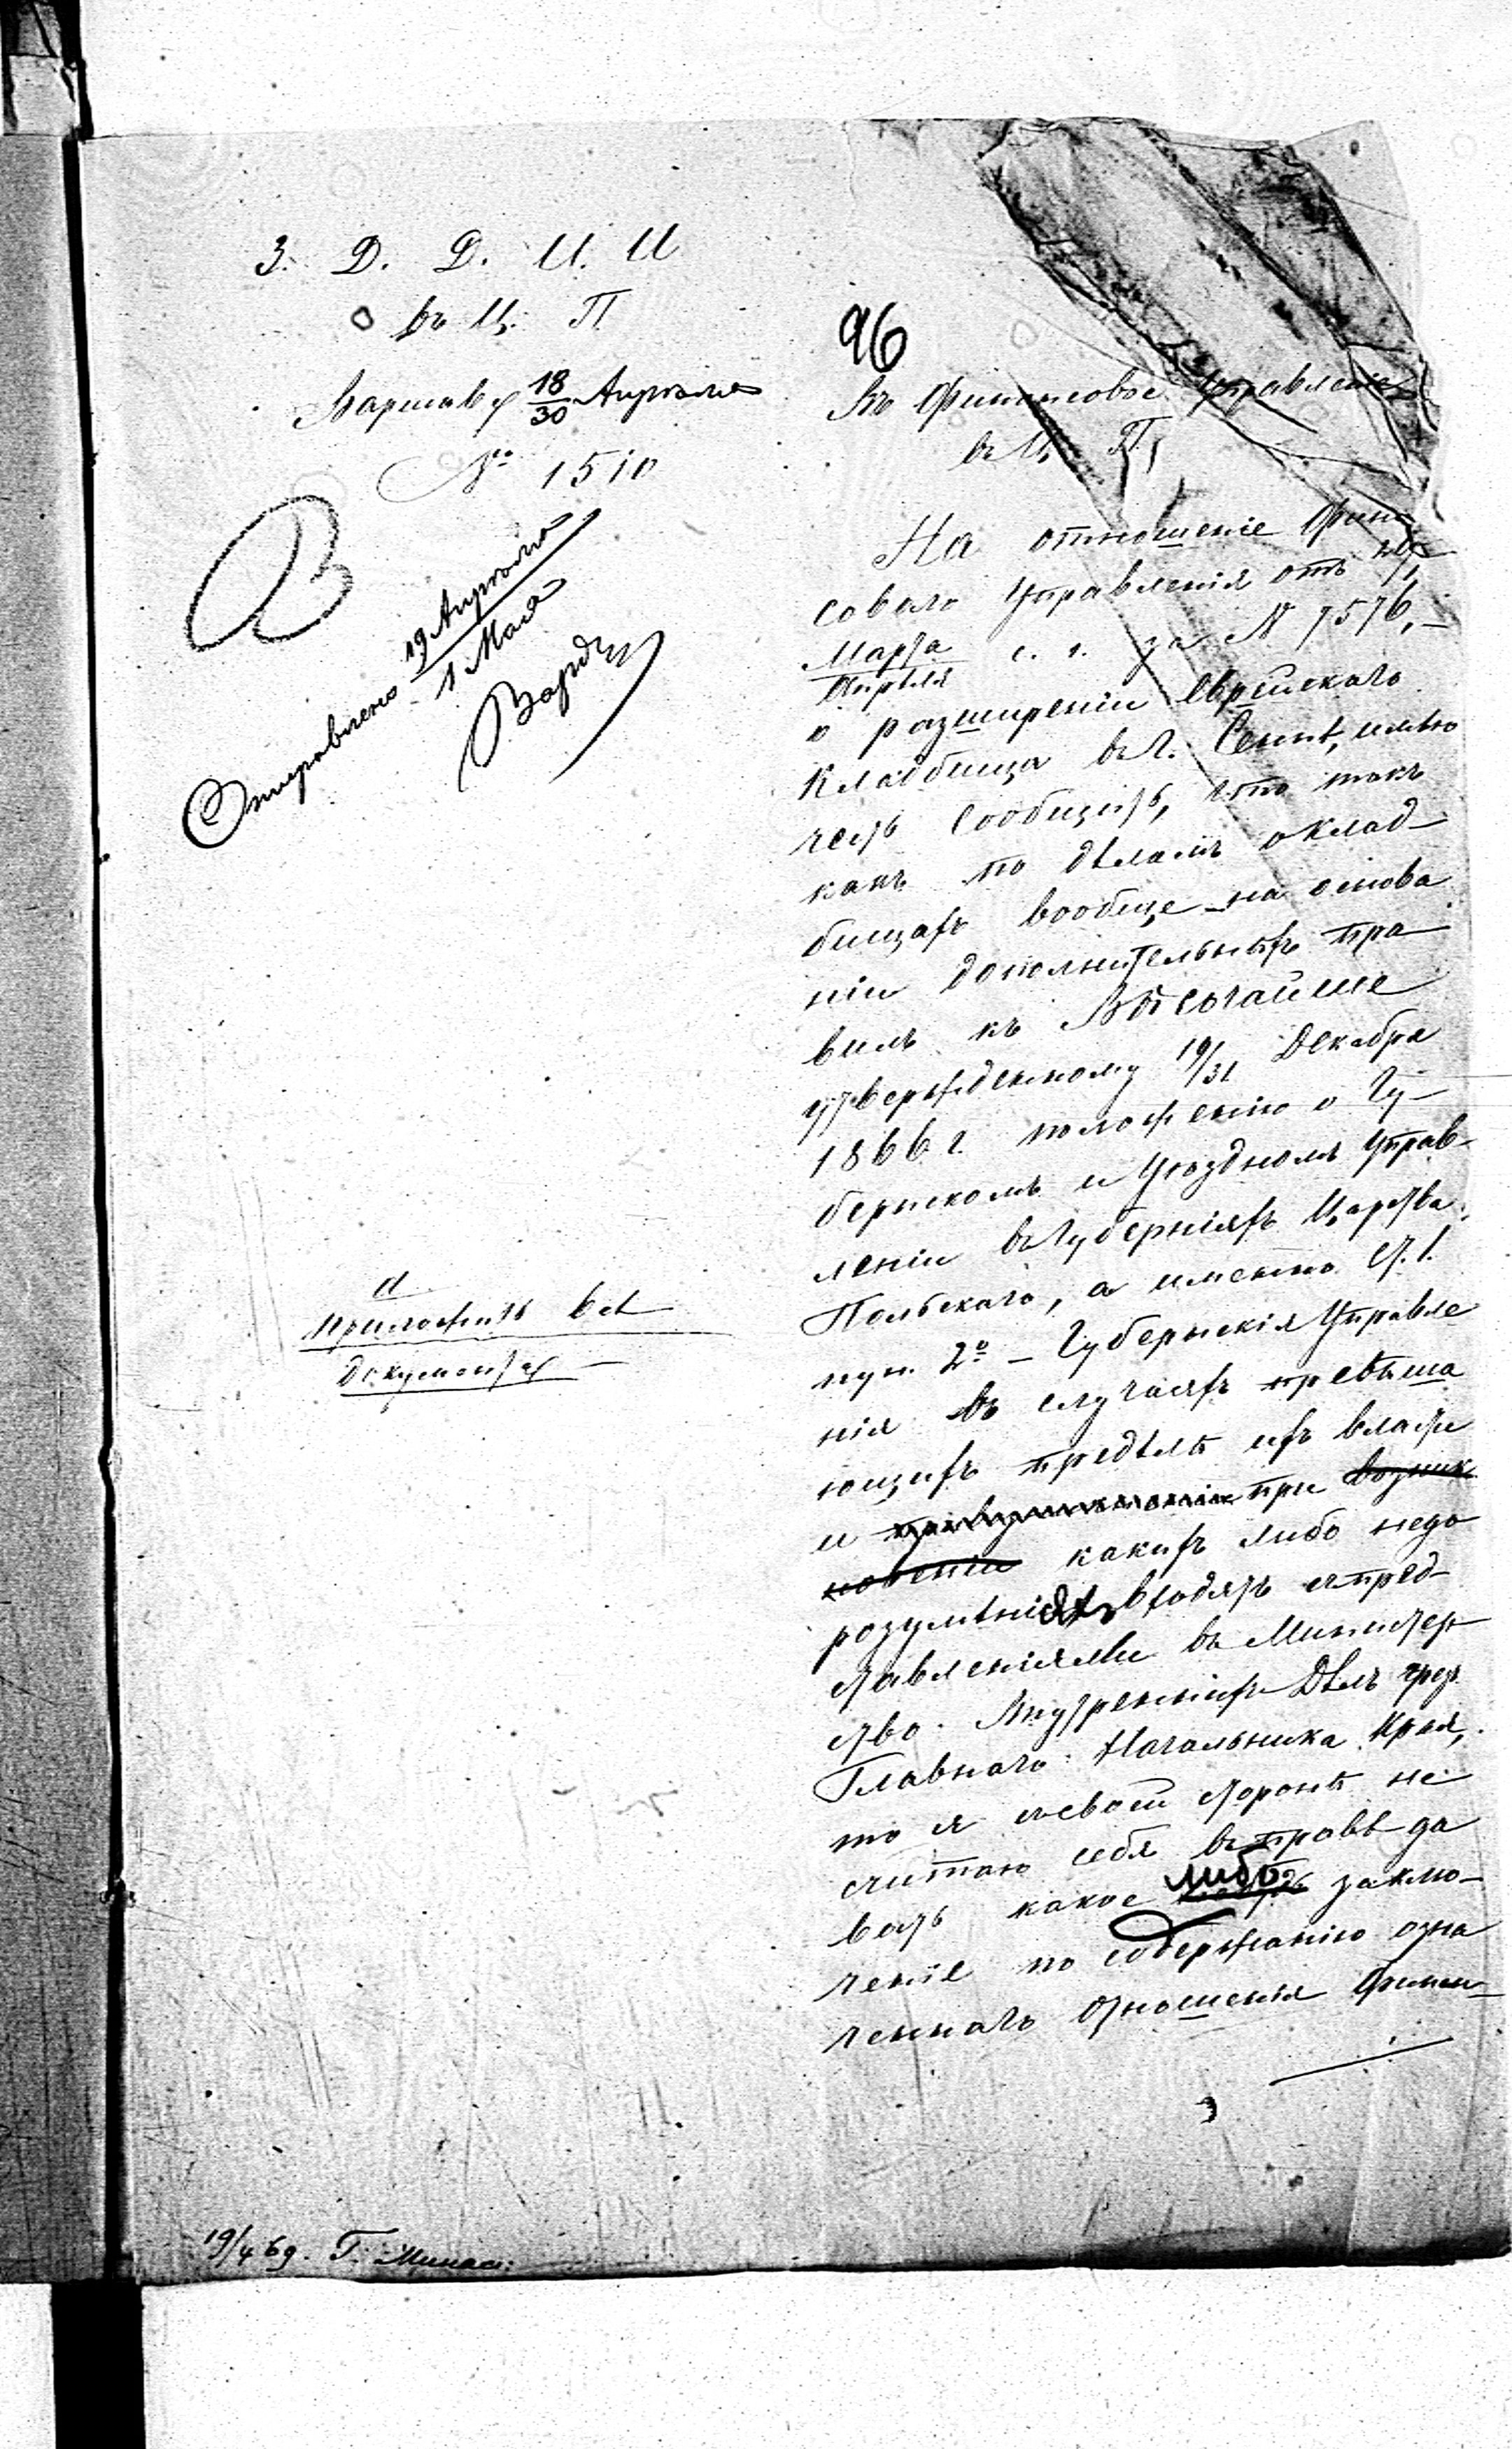 З. Д. Д. И. И
въ Ц. П
Варшава 18/30 Апрѣля
№ 1510
Отправлено 19 Апрѣля
1 Мая
96
Въ Финансовое Управленіе
въ Ц. П.
На отношеніе Финан
соваго Управленія отъ
Марта
Апрѣля с. г. за № 7576,
о разширеніи Еврейскаго
кладбища въ г. имѣю
честь сообщить, что такъ
какъ по дѣламъ о клад-
бищахъ вообще на основа
ніи дополнительныхъ пра-
вилъ къ Высочайше
утвержденному 19/31 Декабря
1866 г. положенію о Гу-
бернскомъ и Уѣздномъ Управ-
леніи въ Губерніяхъ Царства
Польскаго, а именно ст. 1.
пун. 2º - Губернскія Управле
нія въ случаяхъ превыша
ющихъ предѣлъ ихъ власти
и при возник
новеніи какихъ либо недо
разумѣніяхъ входятъ съ пред-
ставленіями въ Министер-
ство Внутреннихъ Дѣлъ чрез
Главнаго Начальника Края,
то я съ своей стороны не
считаю себя въ правѣ да
вать какое либо заклю-
ченіе по содержанію озна
ченнаго отношенія Финан-
и
приложить всѣ
документы
19/4 69. Г.